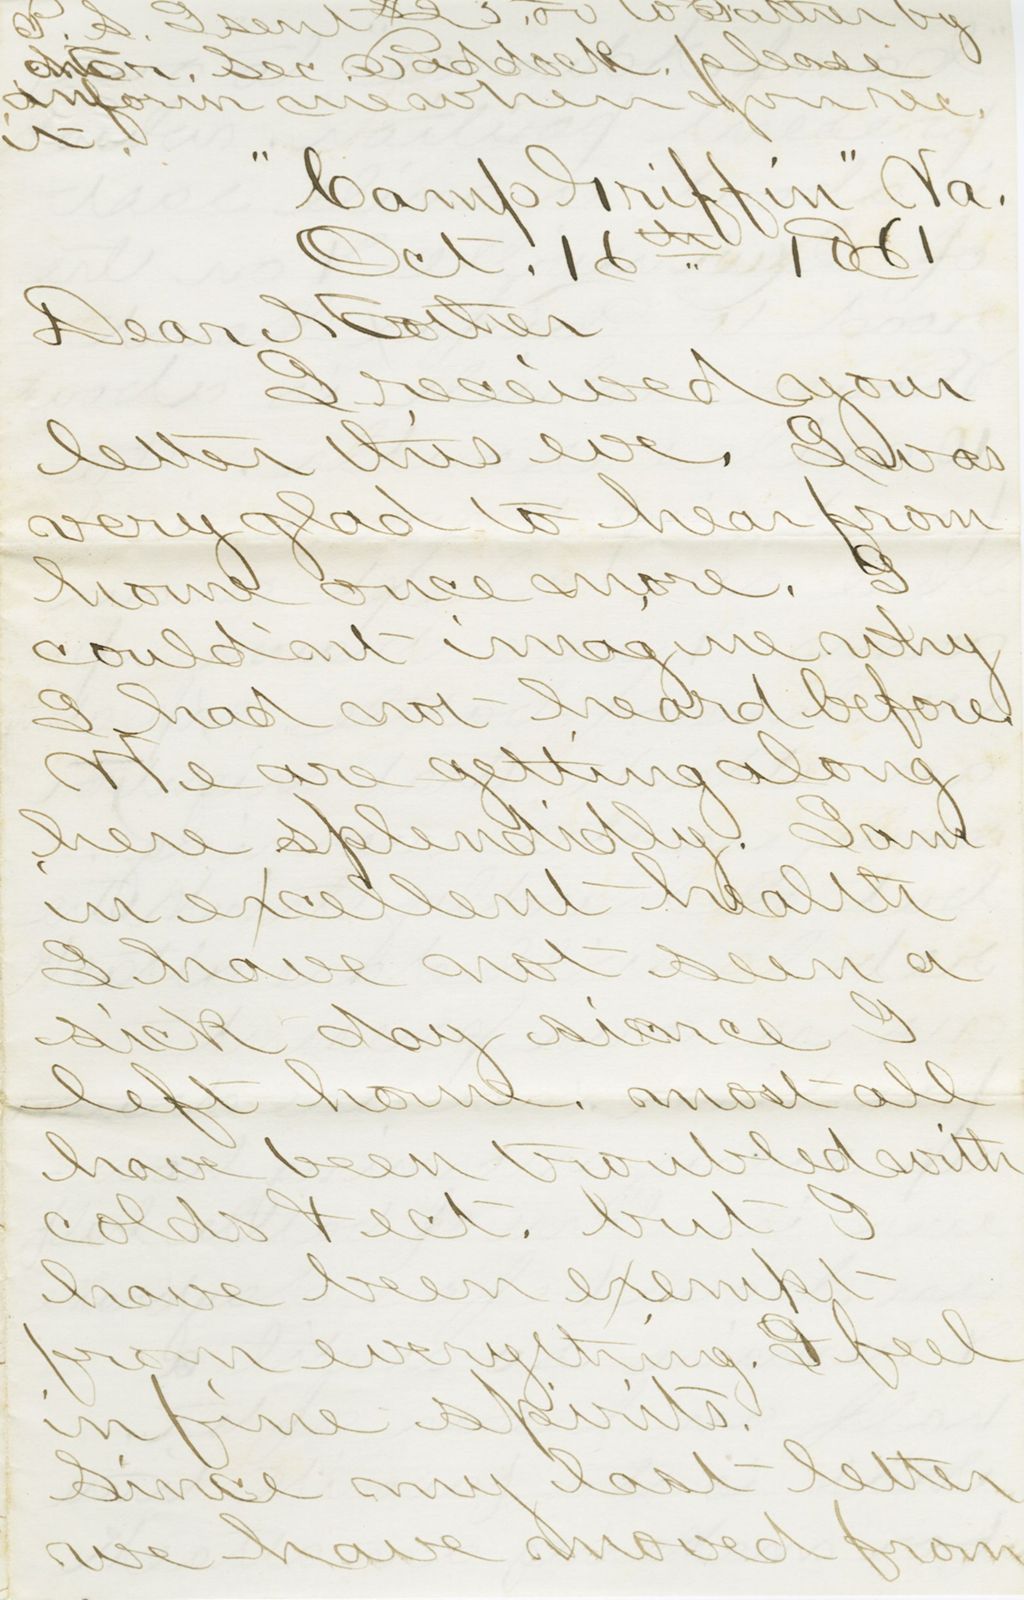 P.S. I sent $25.00 to Father by
Geo. Paddock. please
inform me when you rec.
it.
"Camp Griffin" Va.
Oct. 16th 1861
Dear Mother
I received your
letter this eve. I was
very glad to hear from
home once more. I
could'nt imagine why
I had not heard before.
We are getting along
here splendidly. I am
in excellent health
I have not seen a
sick day since I
left home. most all
have been troubled with
colds & ect. but I
have been exempt
from everything. I feel
in fine spirits.
Since my last letter
we have moved from